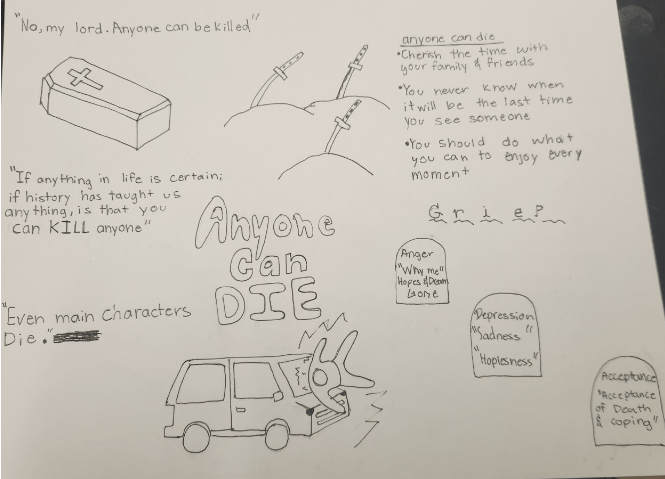 "No, my lord. Anyone can be killed"
anyone can die
•Cherish the time with
your family & friends
•You never know when
it will be the last time
you see someone
•You should do what
you can to enjoy every
moment
"If anything in life is certain;
if history has taught us
anything, is that you
can KILL anyone"
Anyone
Can
DIE
"Even main characters
Die."
G r i e ?
Anger
"Why me"
Hopes & Dream
Gone
Depression
"Sadness"
"Hoplesness"
Acceptance
"Acceptance
of Death
& coping"